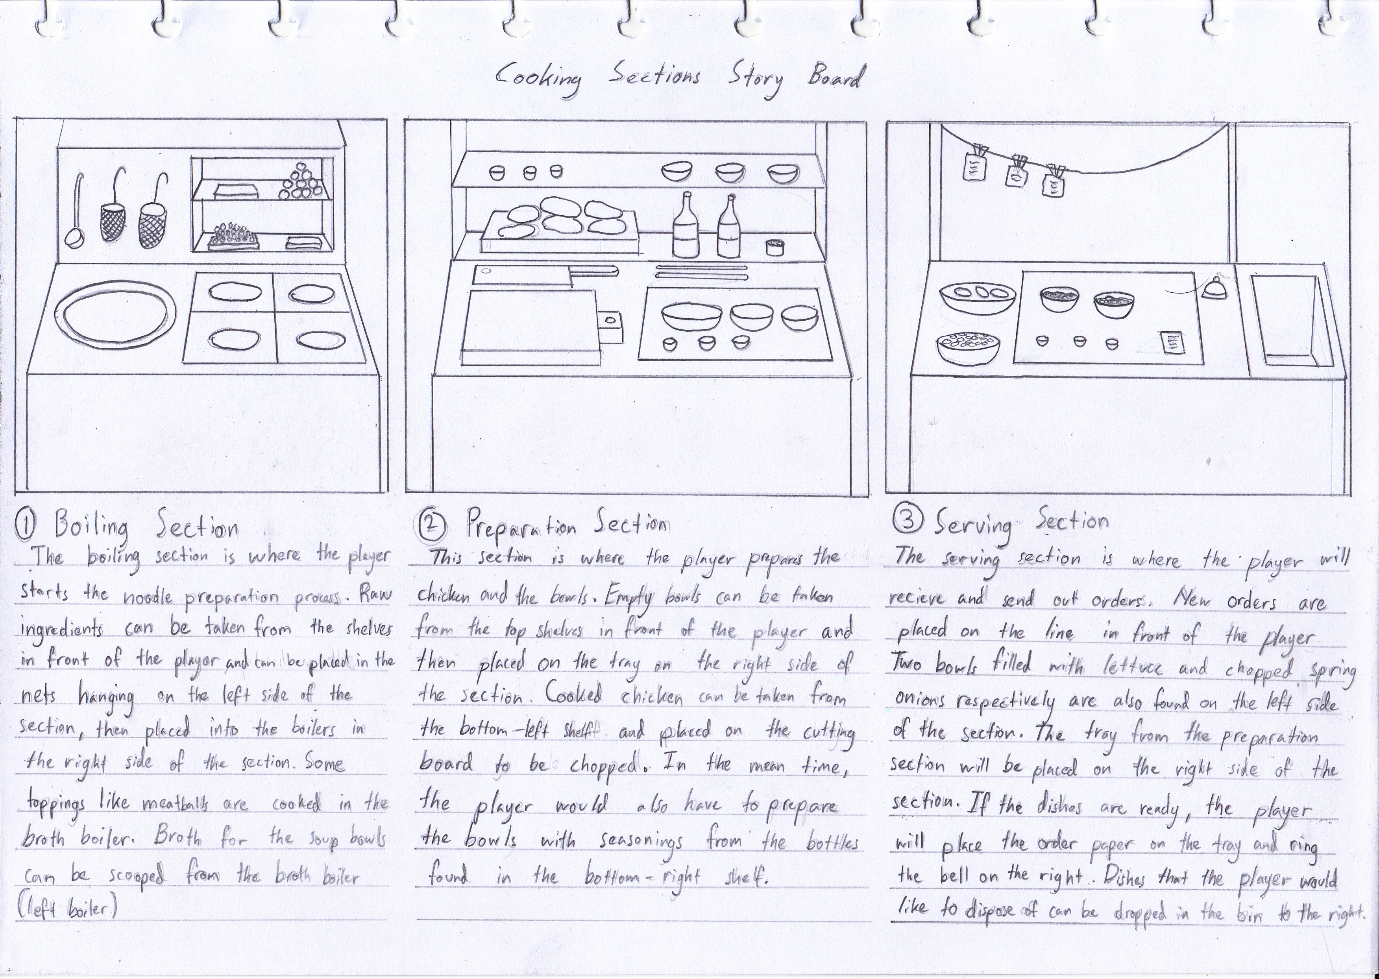 Cooking Sections Story Board
① Boiling Section
The boiling section is where the player
starts the noodle preparation process. Raw
ingredients can be taken from the shelves
in front of the player and can be placed in the
nets hanging on the left side of the
section, then placed into the boilers in
the right side of the section. Some
toppings like meatballs are cooked in the
broth boiler. Broth for the soup bowls
can be scooped from the broth boiler
(left boiler)
② Preparation Section
This section is where the player prepares the
chicken and the bowls. Empty bowls can be taken
from the top shelves in front of the player and
then placed on the tray on the right side of
the section. Cooked chicken can be taken from
the bottom-left shelf and placed on the cutting
board to be chopped. In the mean time,
the player would also have to prepare
the bowls with seasonings from the bottles
found in the bottom-right shelf.
③ Serving Section
The serving section is where the player will
recieve and send out orders. New orders are
placed on the line in front of the player
Two bowls filled with lettuce and chopped spring
onions respectively are also found on the left side
of the section. The tray from the preparation
section will be placed on the right side of the
section. If the dishes are ready, the player
will place the order paper on the tray and ring
the bell on the right. Dishes that the player would
like to dispose of can be dropped in the bin to the right.